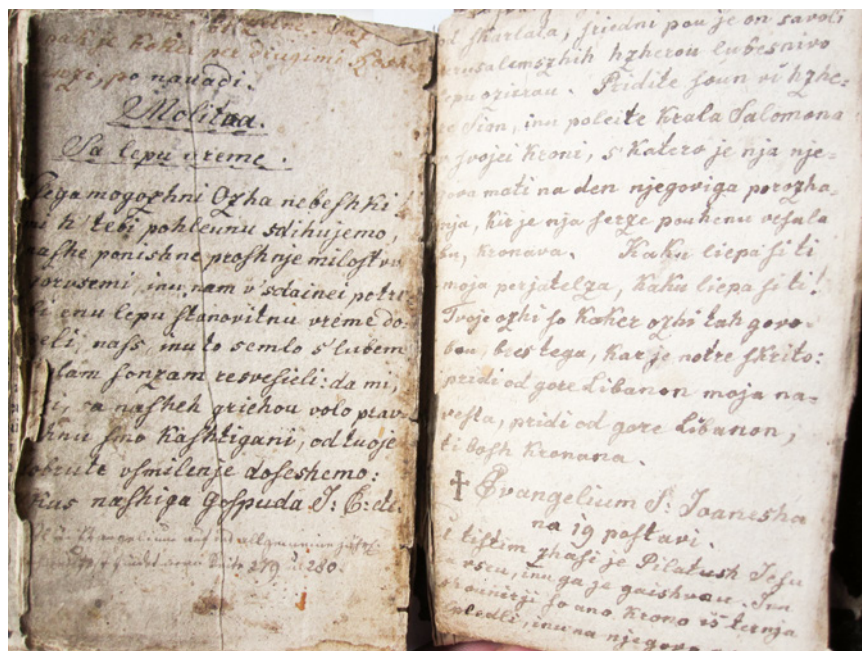 pak je koker per drugimi
, po navadi.
Molitva.
Sa lepu vreme.
mogozhni Ozha nebeshki!
mi k' tebi pohleunu sdihujemo,
nashe ponishne proshnje milostvu
inu nam v' sdainei potre-
bi enu lepu stanovitnu vreme do-
deli, nass, inu to semlo s' lubem
sonzam resveseli: da mi,
sa nasheh griehou volo prav-
smo kashtigani, od tvoje
dobrute vsmilenje doseshemo:
nashiga Gospuda J: C: etc.
279 280.
od skarlata, sriedni pou je on savoli
jerusalemszhih hzherou lubesnivo
lepu ozierau. Pridite soun vi hzhe-
re Sion, inu poleite Krala Salomona
v' svojei kroni, s' katero je nja nje-
gova mati na den njegoviga porozha-
nja, kir je nja serze pouhenu vesela
bu, kronava. Kaku liepa si ti
moja perjatelza, kaku liepa si ti!
Tvoje ozhi so koker ozhi tah goro-
bou, bres tega, kar je notre skrito:
pridi od gore Libanon moja na-
vesta, pridi od gore Libanon,
ti bosh kronana.
† Evangelium S: Joanesha
na 19 postavi.
V tistim zhasi je Pilatush Jesu
sa vseu, inu ga je gaishvau. Inu
shounirji so ano krono is ternja
spledli, inu na njegovo